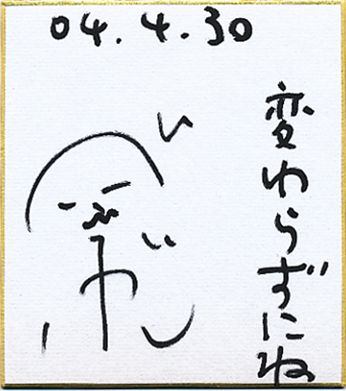 04.4.30
変わらずにね